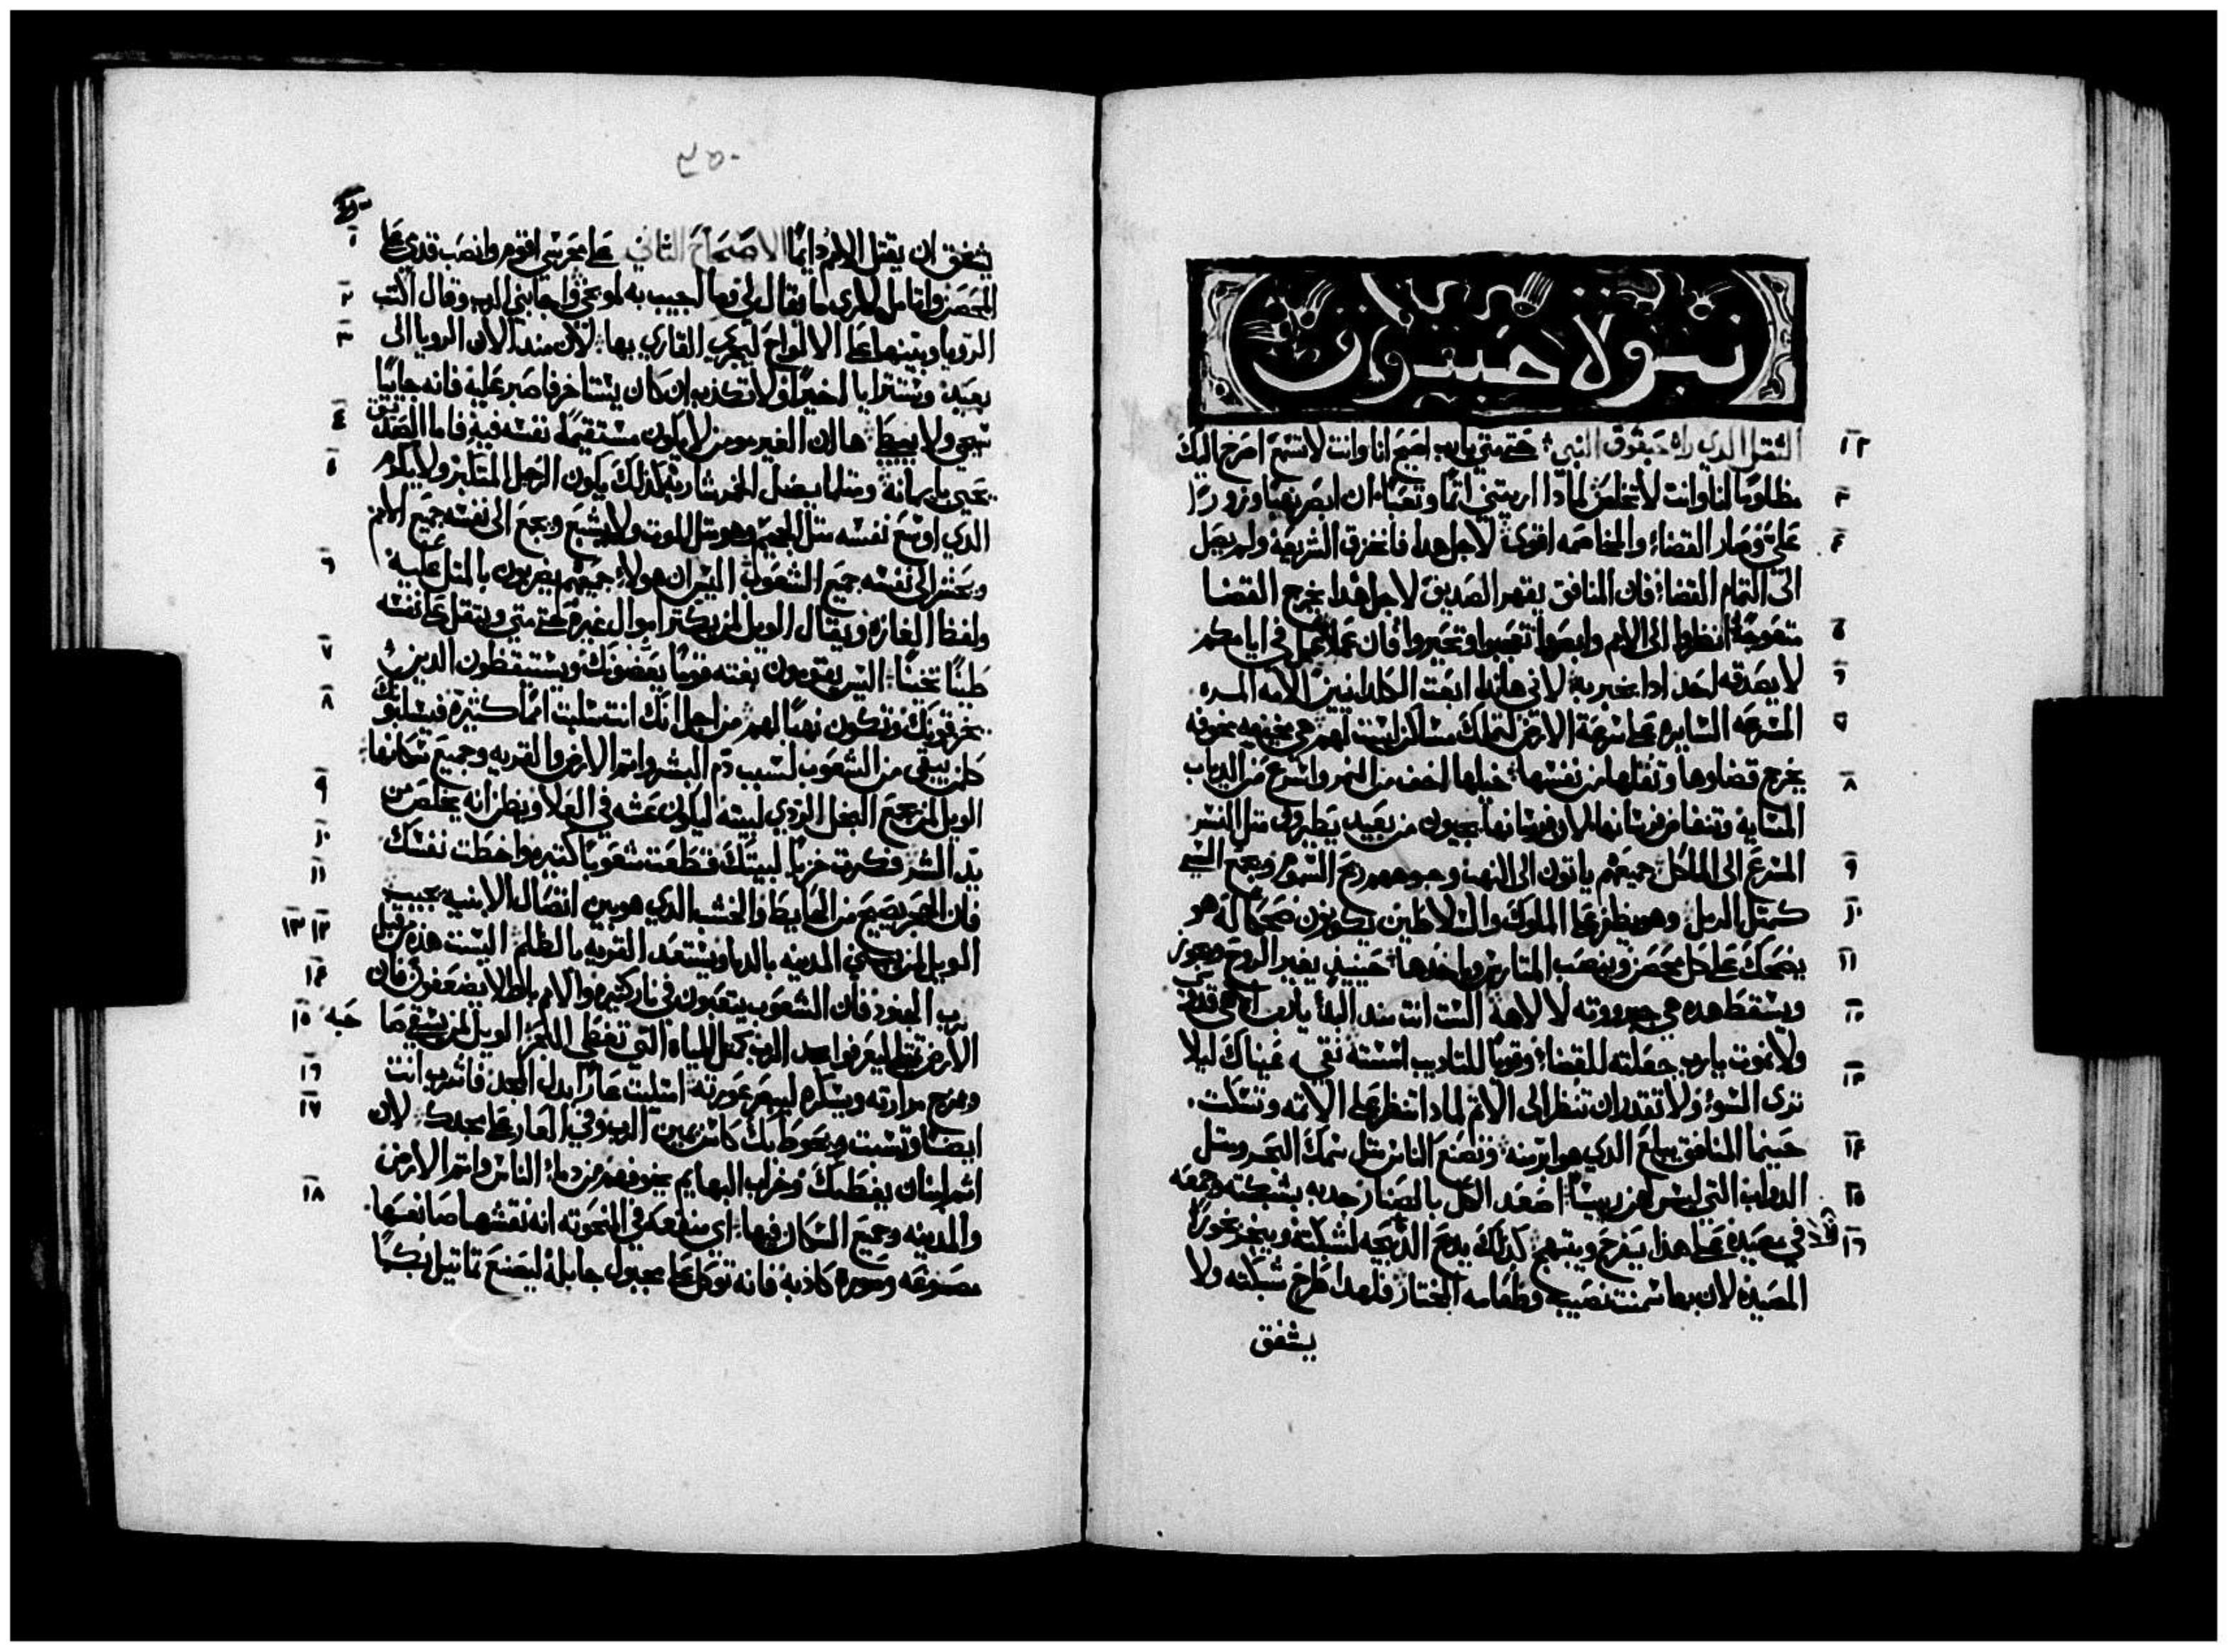 نبوة حبقوق
١ ٢ الثقل الدي راه حبقوق النبي حتي متي يارب اضج انا وانت لا تسمع اصرخ اليك
٣ مظلومًا انا وانت لا تخلص لمادا اريتني اتمًا وتعبًا ان ابصر نهبًا وزورًا
٤ علي وصار القضا والمخاصمه اقوي لاجل هدا فانخزق الشريعه ولم يصل
الي التمام القضا فان المنافق يقهر الصديق لاجل هدا يخرج القضا
٥ متعوجًا انظروا الي الامم وابصروا تعجبوا وتحيروا فان عملا عمل في ايامكم
٦ لا يصدقه احد ادا يخبر به لاني هاندا ابعت الكلدانيين الامه المره
٧ المسرعه السايره علي سعة الارض لتملك مساكن ليست لهم هي مخيفه مخوفه
٨ يخرج قضاوها وثقلها من نفسها خيلها اخف من النمور واسرع من الدياب
المسايه وتنفا فرسانها لان فرسانها يجيون من بعيد يطيرون متل النسر
٩ المسرع الي الماكل جميعهم ياتون الي النهب وجوههم ريح السموم ويجمع السبي
١٠ كمتل الرمل وهو يظفر علي الملوك والسلاطين يكونون ضحكا له هو
١١ يضحك علي كل محصن وينصب المتاريس وياخدها حينيد يغير الروح ويجوز
١٢ ويسقط هده هي جبرووته لالاهه الست انت مند البدأ يارب الاهي قدوسي
ولا نموت يارب جعلته للقضا وقويًا للتاديب اسسته نقيه عيناك ليلا
١٣ تري السو ولا تقدر ان تنظر الي الاتم لمادا تنظر علي الاتمه وتسكت
١٤ حينما المنافق يبلع الدي هو ابر منه وتصنع الناس متل سمك البحر ومتل
١٥ الدواب التي ليس لهن رييسًا اصعد الكل بالصنار جدبه بشبكته وجمعه
١٦ في مصيده علي هدا يفرح ويبتهج كدلك يدبح الدبيحه لشبكته ويبخر بخورًا
المصيده لان بهما سمنت نصيبه وطعامه المختار فلهدا طرح شبكته ولا
يشفق
٣٥٠
يشفق ان يقتل الامم دايمًا الاصحاح الثاني ١ علي محرسي اقوم وانصب قدمي علي
٢ المحصن واتامل لاري ما يقال لي وما اجيب به لموبخي فاجابني الرب وقال اكتب
٣ الرويا وبينها علي الالواح ليجري القاري بها لان مند الان الرويا الي
بعيد وستترايا اخيرًا ولا تكدب ان كان يستاخر فاصبر عليه فانه جاييًا
٤ سيجي ولا يبطي ها ان الغير مومن لا يكون مستقيمة نفسه فيه فاما الصديق
٥ يحيي بايمانه ومتلما يضل الخمر شاربه كدلك يكون الرجل المتكبر ولا يكرم
الدي اوسع نفسه متل الجحيم وهو متل الموت ولا يشبع ويجمع الي نفسه جميع الامم
٦ ويحشر الي نفسه جميع الشعوب اليس ان هولا جميعهم يضربون بالمتل عليه
ولفظ الغازه ويقال الويل لمن يكتر اموال غيره حتي متي ويتقل علي نفسه
٧ طينًا تخينًا اليس يقومون بغته قومًا يعضونك ويستيقظون الدين
٨ يحرقونك وتكون نهبًا لهم من اجل انك انت سلبت اممًا كثيره فيسلبونك
كلمن يبقي من الشعوب لسبب دم البشر واتم الارض والقريه وجميع سكانها
٩ الويل لمن يجمع البخل الردي لبيته ليكون عشه في العلا ويظن انه يخلص من
١٠ يد الشر فكرت خزيًا لبيتك قطعت شعوبًا كتيره واخطت نفسك
١١ فان الحجر يصيح من الحايط والخشب الدي هو بين اتصال الابنيه يجيب
١٢ ١٣ الويل لمن يبني المدينه بالدما ويستعد القريه بالظلم اليست هده من قبل
١٤ رب الجنود فان الشعوب يتعبون في نار كتيره والامم باطلا يضعفون فان
١٥ الارض تمتلي ليعرفوا مجد الرب كمتل المياه التي تغطي البحر الويل لمن يسقي صاحبه
١٦ ومزج مرارته ويسكره ليبصر عورته امتليت عارًا بدل المجد فاشرب انت
١٧ ايضًا وتشتت ويحوط بك كاس يمين الرب وقي العار علي مجدك لان
اتم لبنان يغطيك وخراب البهايم يخوفهم من دما الناس واتم الارض
١٨ والمدينه وجميع السكان فيها اي منفعه في المنحوته انه نقشها صانعها
مصنوعه وصوره كادبه فانه توكل علي مجبول جابله ليصنع تماتيل بكمًا